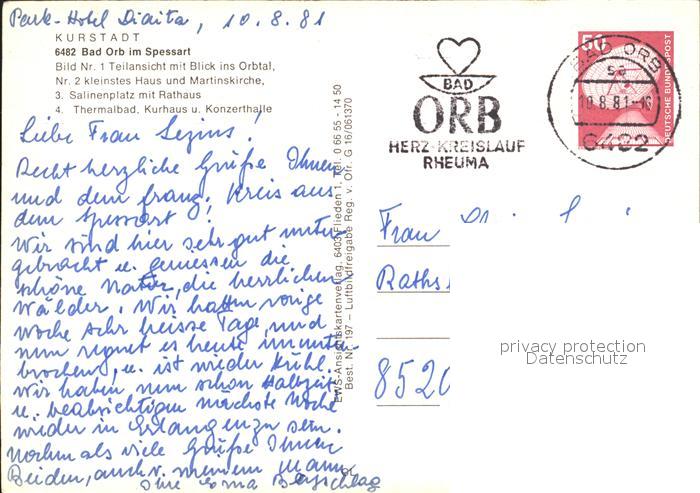 Park-Hotel Diaita, 10.8.81
KURSTADT
6482 Bad Orb im Spessart
Bild Nr. 1 Teilansicht mit Blick ins Orbtal,
Nr. 2 kleinstes Haus und Martinskirche,
3. Salinenplatz mit Rathaus
4. Thermalbad, Kurhaus u. Konzerthalle
Liebe Frau
Recht herzliche Grüße Ihnen
und dem franz. Kreis aus
dem Spessart!
Wir sind hier sehr gut unter-
gebracht u. geniessen die
schöne Natur, die herrlichen
Wälder. Wir hatten vorige
Woche sehr heisse Tage, und
nun regnet es heute ununter-
brochen, u. ist wieder kühl.
Wir haben nun schon Halbzeit
u. beabsichtigen nächste Woche
wieder in Erlangen zu sein.
Nochmals viele Grüße Ihnen
Beiden, auch v. meinem Mann
Ihre Erna
EWS-Ansichtskartenverlag, 6403 Flieden 1, Tel. 0 66 55 - 14 50
Best. Nr. 197 – Luftbildfreigabe Reg. v. Ofr. G 16/061370
BAD
ORB
HERZ-KREISLAUF
RHEUMA
50
DEUTSCHE BUNDESPOST
BAD ORB
sa
10.8.81-16
6482
Frau Dr.
Raths
8520
privacy protection
Datenschutz